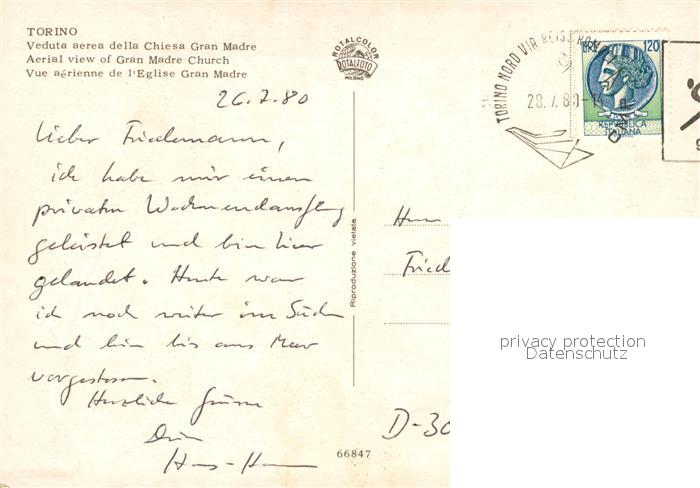 TORINO
Veduta aerea della Chiesa Gran Madre
Aerial view of Gran Madre Church
Vue aérienne de l'Eglise Gran Madre
ROTALCOLOR
ROTALFOTO
MILANO
TORINO NORD VIA REISS ROMOLI
28.7.80-14
LIRE 120
REPUBBLICA
ITALIANA
26.7.80
Lieber Friedemann,
ich habe mir einen
privaten Wochenendausflug
geleistet und bin hier
gelandet. Heute war
ich noch weiter im Süden
und bin bis ans Meer
vorgestossen.
Herzliche Grüsse
Dein
Hans-
Riproduzione vietata
66847
Herrn
Fried
D-30
privacy protection
Datenschutz